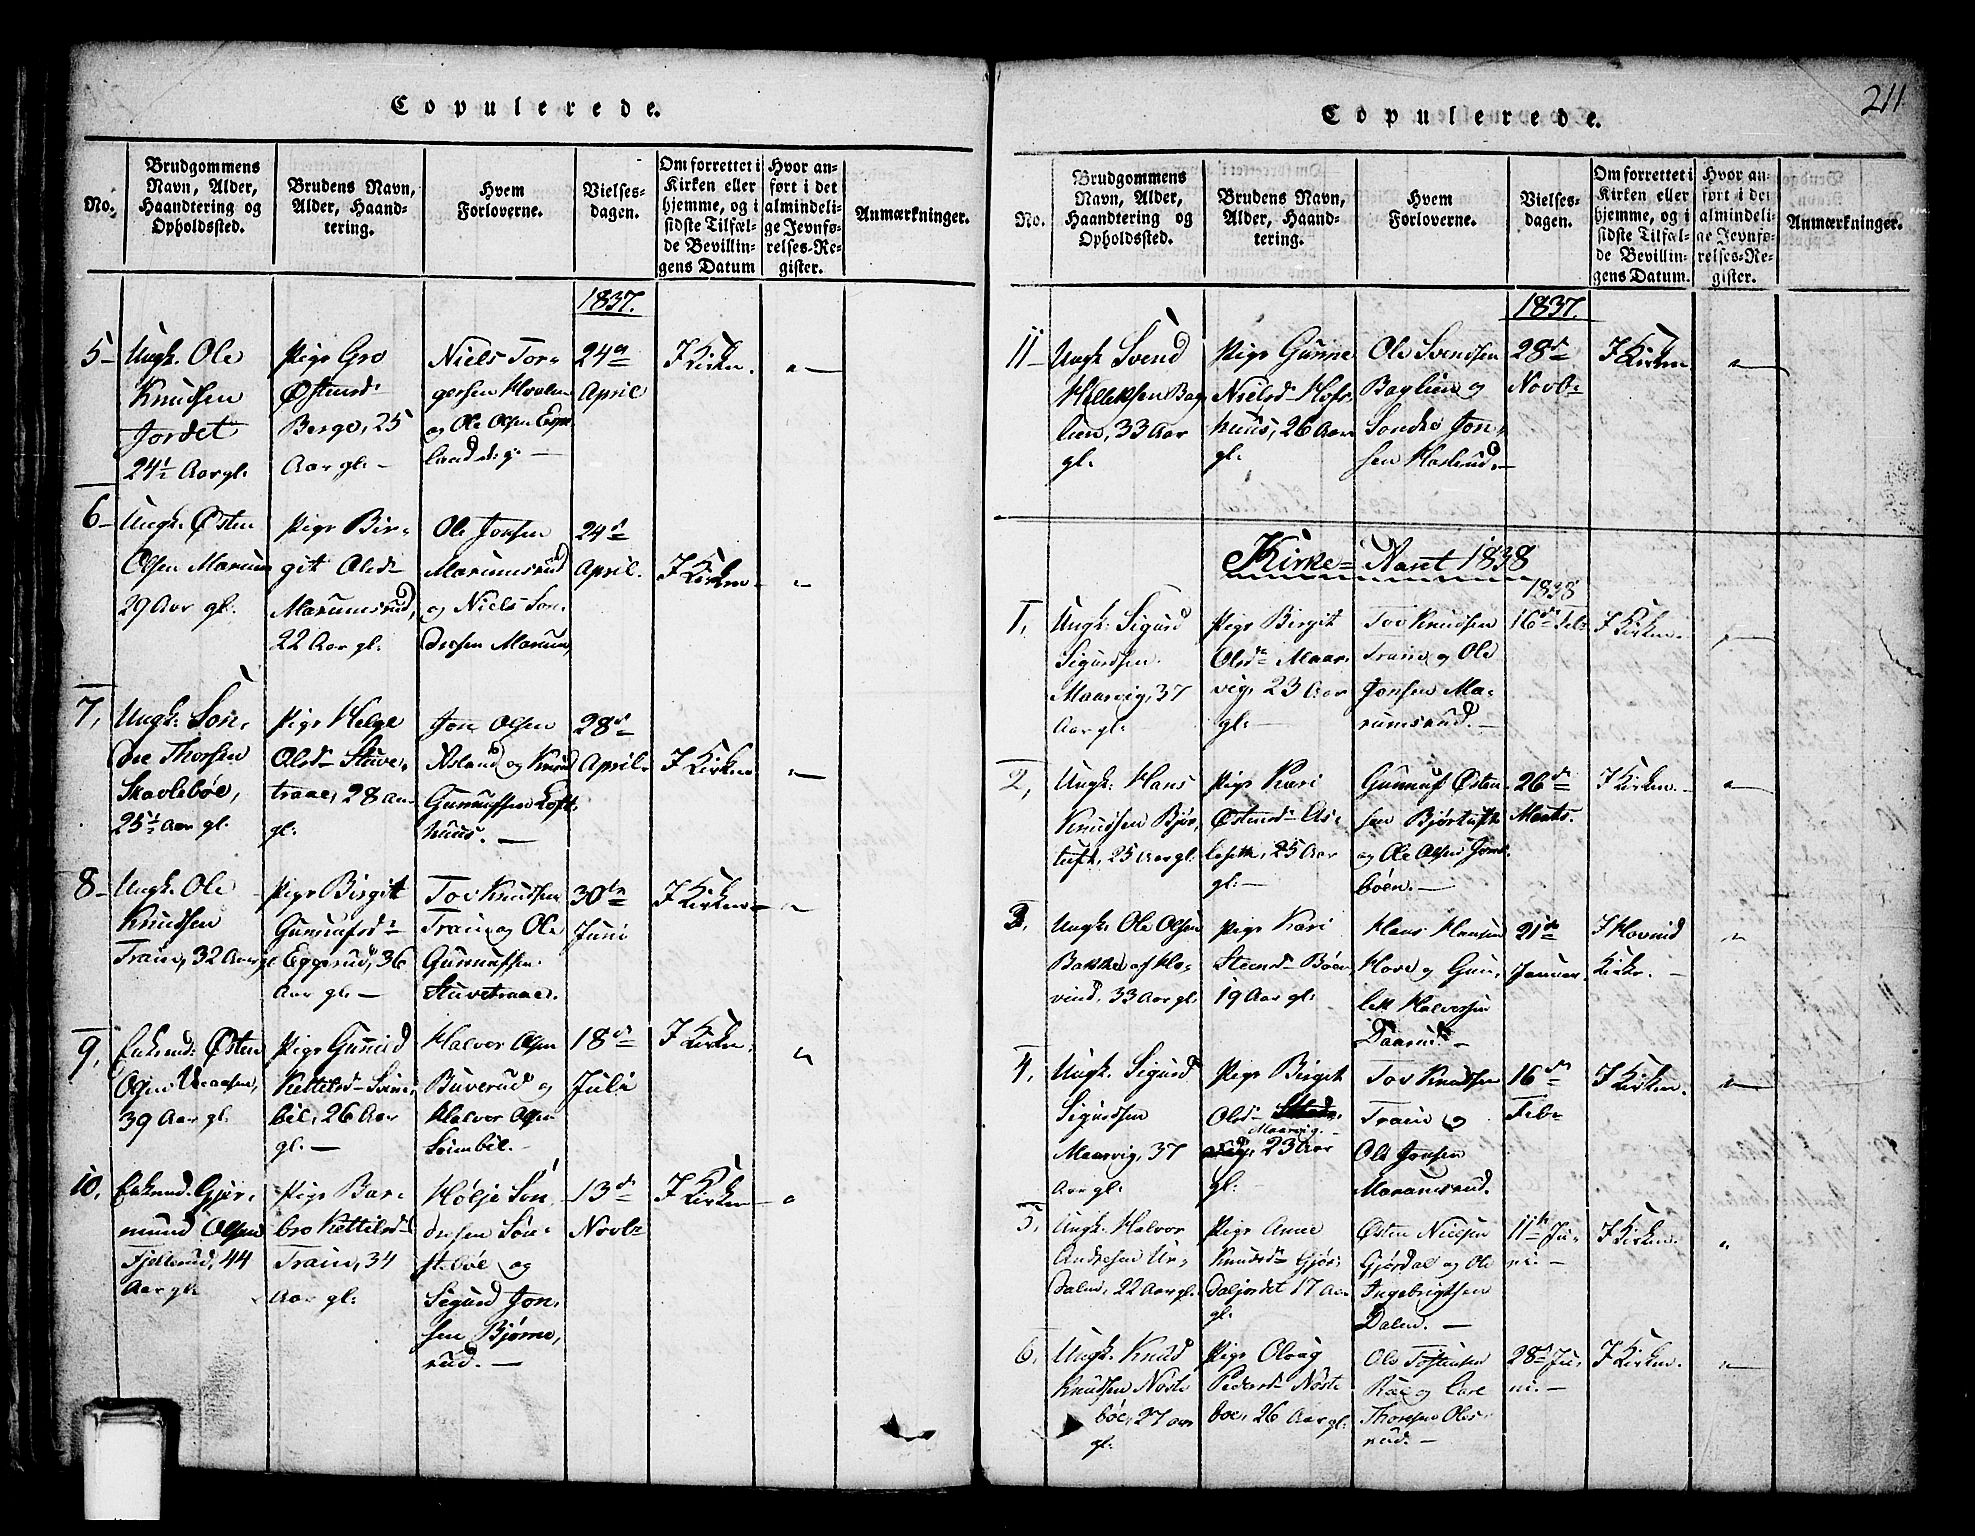 211
Copulerede.
No.
Brudgommens
Navn, Alder,
Haandtering og
Opholdssted.
Brudens Navn,
Alder, Haand-
tering.
Hvem
Forloverne.
Vielses-
dagen.
Om forrettet i
Kirken eller
hjemme, og i
sidste Tilfæl-
de Bevillin-
gens Datum
Hvor an-
ført i det
almindeli-
ge Jevnfø-
relses-Re-
gister.
Anmærkninger.
1837.
5-
Ungk. Ole
Knudsen
Jordet
24½ Aar gl.
Pige Gro
Østensd-
Berge, 25
Aar gl. -
Niels Tor-
gersen
og Ole Olsen
24de
April
I Kirken.
6-
Ungk. Østen
Olsen Marum
29 Aar gl.
Pige Bir-
git Olsd-
Marumsrud,
22 Aar gl.
Ole Jonsen
Marumsrud
og Niels Son-
dresen Marum,
24de
April.
I Kirken -
7,
Ungk. Son-
dre Thorsen
Skavlebøe,
25½ Aar gl.
Pige Helge
Olsd- Stuve-
traae, 28 Aar
gl.
Jon Olsen
Asland og Knud
Gunnufsen Loft-
huus. -
28de
April
I Kirken
8-
Ungk. Ole
Knudsen
Traim, 32 Aar gl
Pige Birgit
Gunnufsd-
Eggerud, 36
Aar gl. -
Tov Knudsen
Traim og Ole
Gunnufsen
Stuvetraae.
30te
Juni
I Kirken -
9,
Enkemd: Østen
Olsen
39 Aar gl.
Pige Gunild
Kettilsd- Svim-
bil, 26 Aar
gl. -
Halvor Olsen
Buverud og
Halvor Olsen
Svimbil. -
18de
Juli
I Kirken.
10,
Enkemd. Gjer-
mund Olsen
Fjellerud, 44
Aar gl.
Pige Bar-
bro Kettilsd-
Traim, 34
Aar gl.
Hølje Son-
dresen Søn-
stebøe og
Sigurd Jon-
sen Bjørne-
rud. -
13de
Novb-
I Kirken -
Copulerede.
No.
Brudgommens
Navn, Alder,
Haandtering og
Opholdssted.
Brudens Navn,
Alder, Haand-
tering.
Hvem
Forloverne.
Vielses-
dagen.
Om forrettet i
Kirken eller
hjemme, og i
sidste Tilfæl-
de Bevillin-
gens Datum.
Hvor an-
ført i det
almindeli-
ge Jevnfø-
relses-Re-
gister.
Anmærkninger.
1837.
11-
Ungk. Svend
Halleksen Bag-
lien, 33 Aar
gl.
Pige Gunne
Nielsd- Hofs-
huus, 26 Aar
gl.
Ole Svendsen
Baglien og
Sondre Jon-
sen Haslerud. -
28de
Novb-
I Kirken
Kirke-Aaret 1838
1838
1,
Ungk: Sigurd
Sigurdsen
Maarvig, 37
Aar gl.
Pige Birgit
Olsd- Maar-
vig, 23 Aar
gl. -
Tov Knudsen
Traim og Ole
Jonsen Ma-
rumsrud. -
16de Feb-
I Kirken.
2,
Ungk: Hans
Knudsen Bjør-
tuft, 25 Aar gl.
Pige Kari
Østensd-
25 Aar
gl. -
Gunnuf Østen-
sen Bjørtuft
og Ole Olsen
böen. -
26de
Marts.
I Kirken. -
3,
Ungk: Ole Olsen
Bakke af Ho-
vind, 33 Aar gl.
Pige Kari
Steensd- Bøen
19 Aar gl.
Hans Hansen
Hove og Gun-
lek Halvorsen
Daarud. -
21de
Januar
I Hovind
Kirke. -
4,
Ungk. Sigurd
Sigurdsen
Maarvig, 37
Aar gl.
Pige Birgit
Olsd-
Maarvig. -
23 Aar
gl.
Tov Knudsen
Traim og
Ole Jonsen
Marumsrud.
16de
Feb-
I Kirken.
5,
Ungk. Halvor
Andresen Ur-
dalen, 22 Aar gl.
Pige Anne
Knudsd- Gjøs-
daljordet 17 Aar
gl.
Østen Nielsen
Gjøsdal og Ole
Ingebrigtsen
Dalen. -
11te Ju-
ni. -
I Kirken.
6.
Ungk. Knud
Knudsen Nøste
böe, 27 Aar
gl.
Pige Olaug
Pedersd- Nøste
boe, 26 Aar gl.
Ole Tostensen
Rue og
Thorsen Oles-
rud. -
28de Ju-
ni. -
I Kirken.